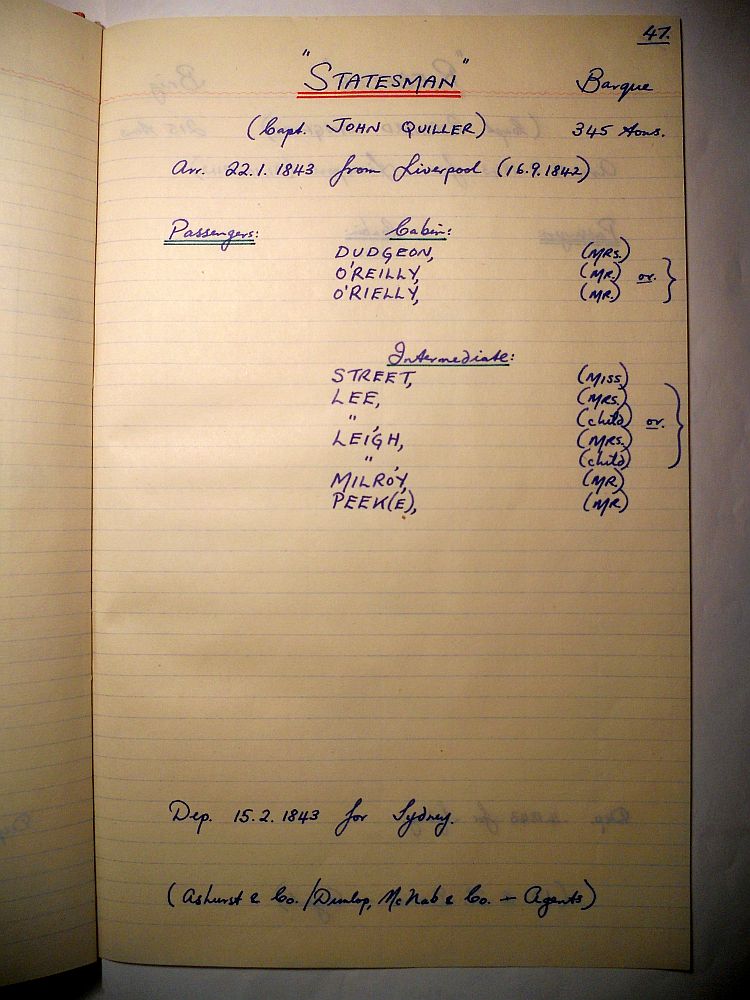 47.
"STATESMAN" Barque
(Capt. JOHN QUILLER) 345 tons.
Arr. 22.1.1843 from Liverpool (16.9.1842)
Passengers: Cabin:
DUDGEON, (MRS.)
O'REILLY, (MR.) or.
O'RIELLY, (MR.)
Intermediate:
STREET, (MISS)
LEE, (MRS.)
" , (child) or.
LEIGH, (MRS.)
" , (child)
MILROY, (MR)
PEEK(E), (MR)
Dep. 15.2.1843 for Sydney.
(Ashurst & Co. / Dunlop, McNab & Co. – Agents)